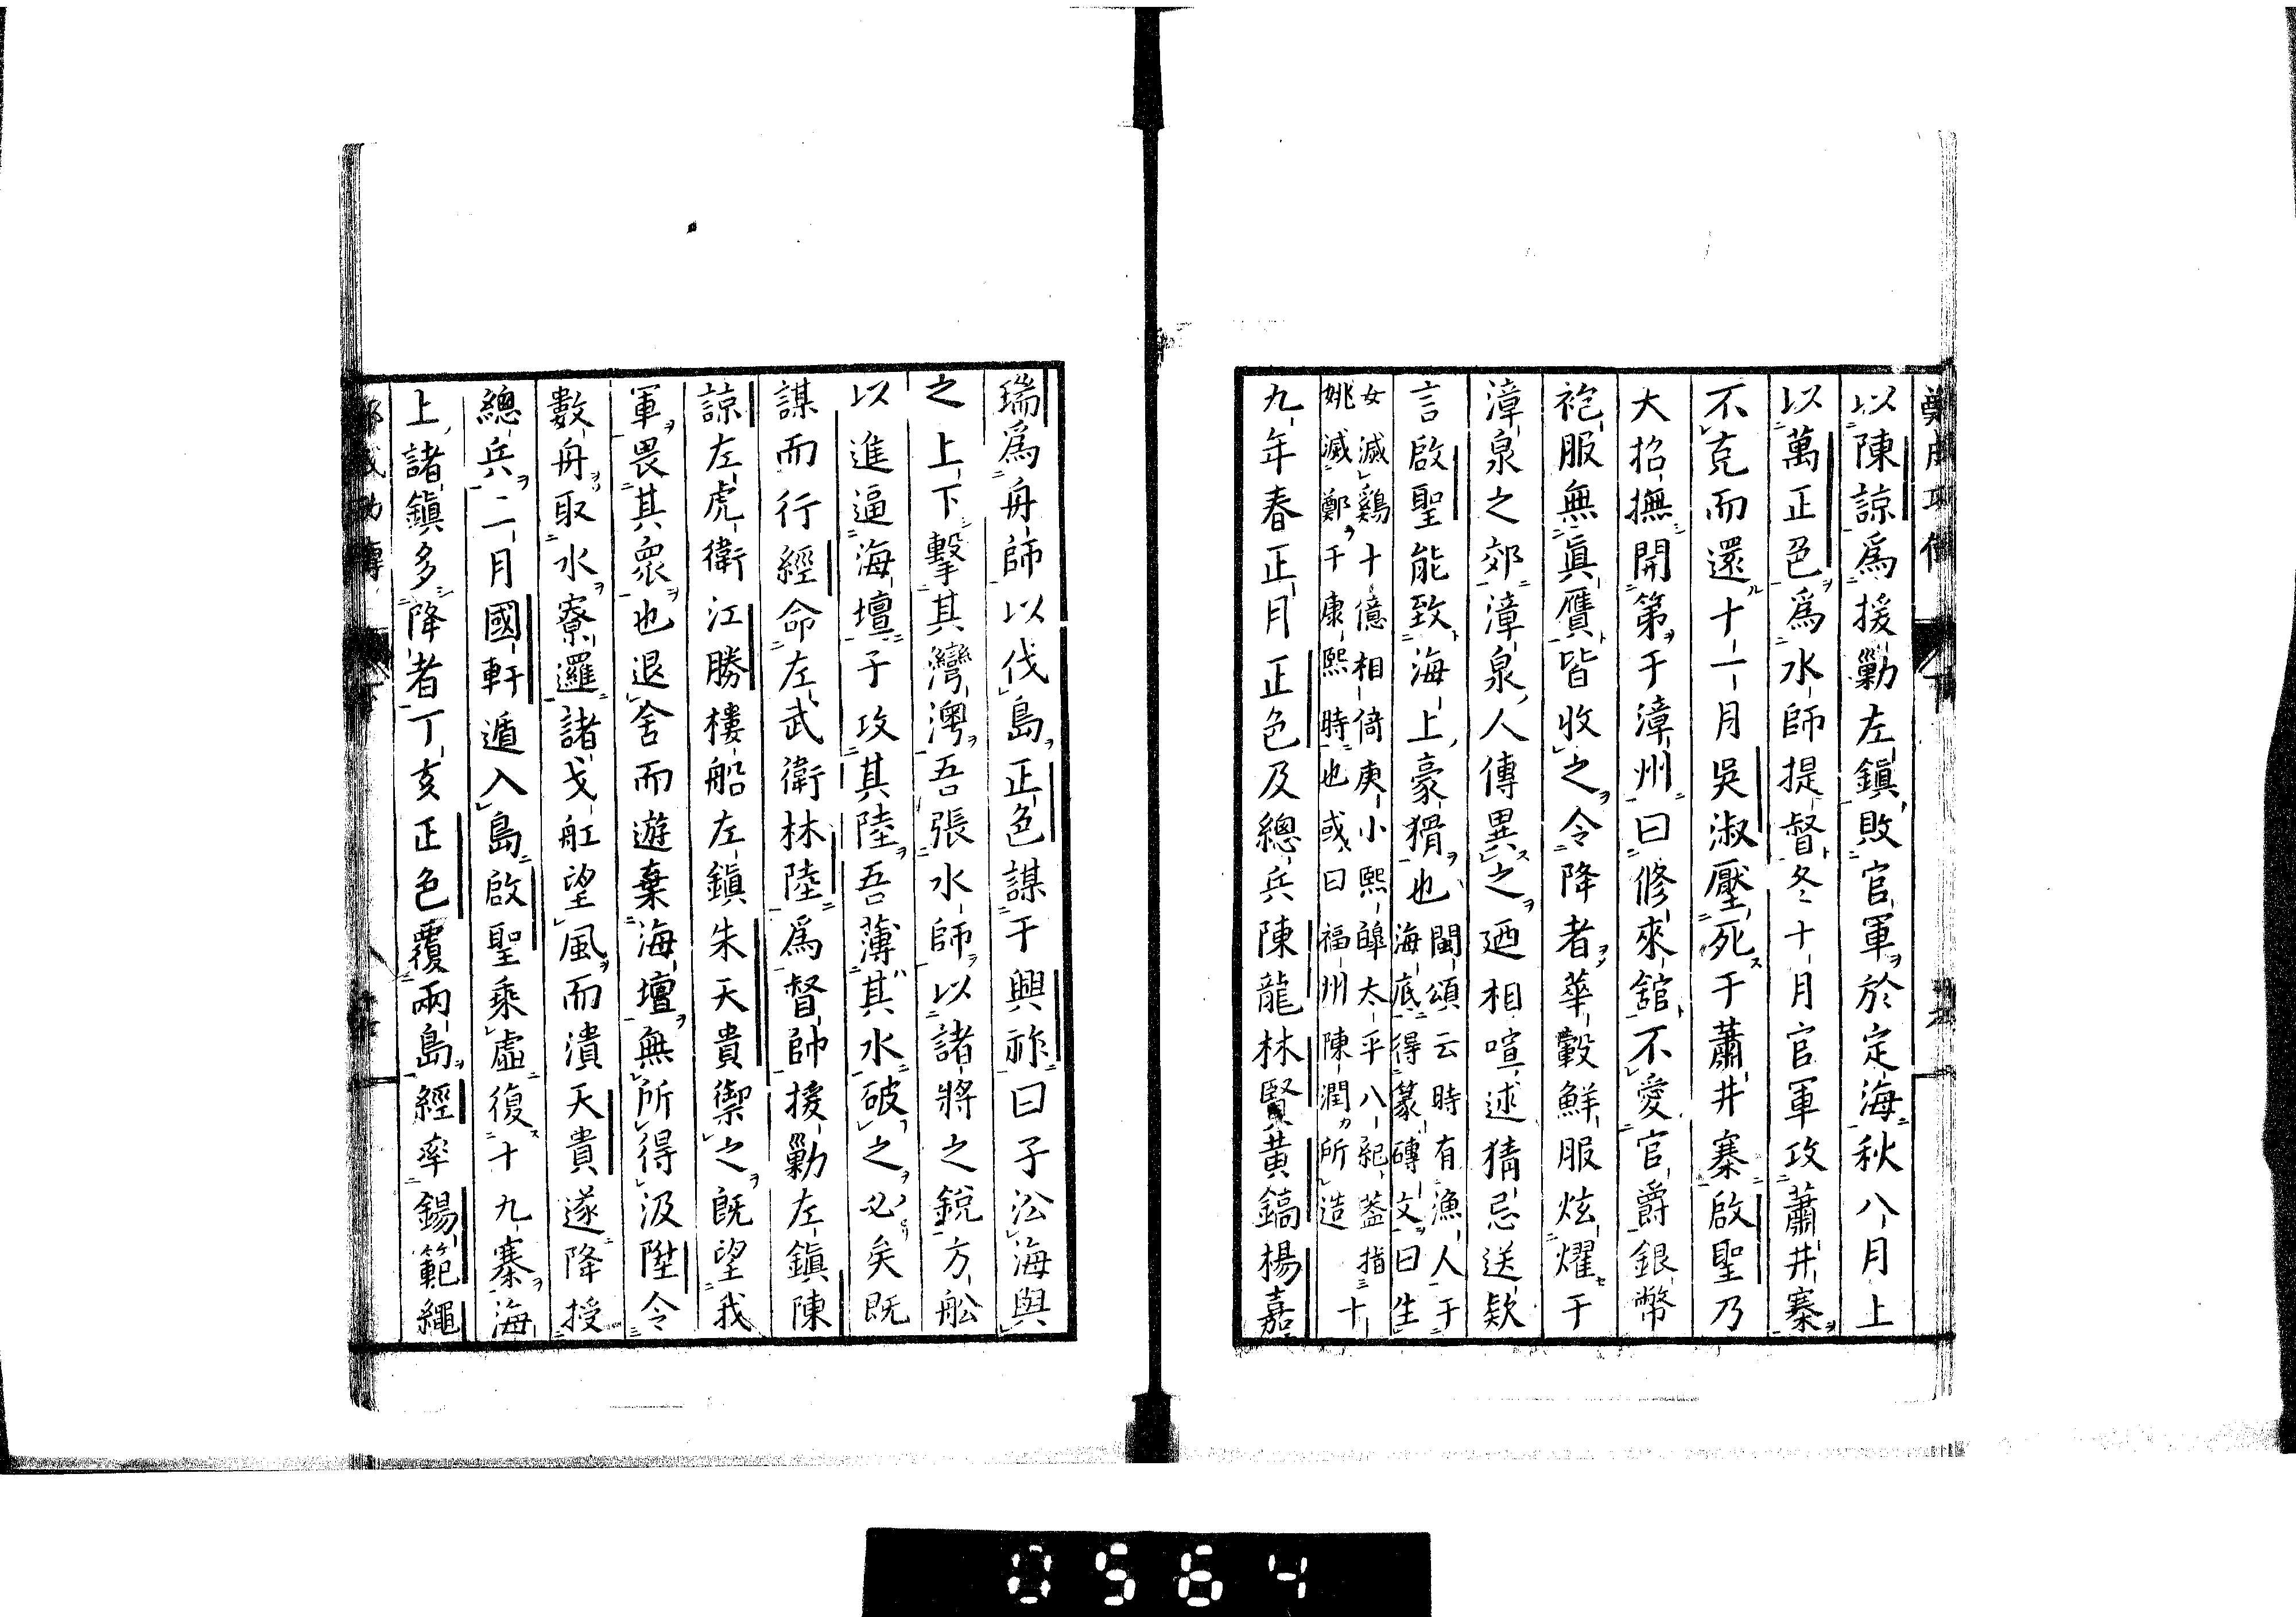 以陳諒爲援勦左鎮敗官軍於定海秋八月上
以萬正色爲水師提督冬十月官軍攻蕭井寨
不克而還十一月吳淑壓死于蕭井寨啟聖乃
大招撫開第于漳州曰修來舘不愛官爵銀幣
袍服無眞贋皆收之令降者華轂鮮服炫燿于
漳泉之郊漳泉人傳異之廼相喧述猜忌送欵
言啟聖能致海上豪猾也閩頌云時有漁人于
海底得篆磚文曰生
女滅雞十億相倚庚小熙皥太平八紀蓋指十
姚滅鄭于康熙時也或曰福州陳潤所造
九年春正月正色及總兵陳龍林賢黃鎬楊嘉
瑞爲舟師以伐島正色謀于興祚曰子沿海與
之上下擊其灣澳吾張水師以諸將之銳方舩
以進逼海壇子攻其陸吾薄其水破之必矣既
謀而行經命左武衛林陞爲督帥援勦左鎮陳
諒左虎衛江勝樓船左鎮朱天貴禦之既望我
軍畏其衆也退舍而遊棄海壇無所得汲陞令
數舟取水寮邏諸戈舡望風而潰天貴遂降授
總兵二月國軒遁入島啟聖乘虛復十九寨海
上諸鎮多降者丁亥正色覆兩島經率錫範繩